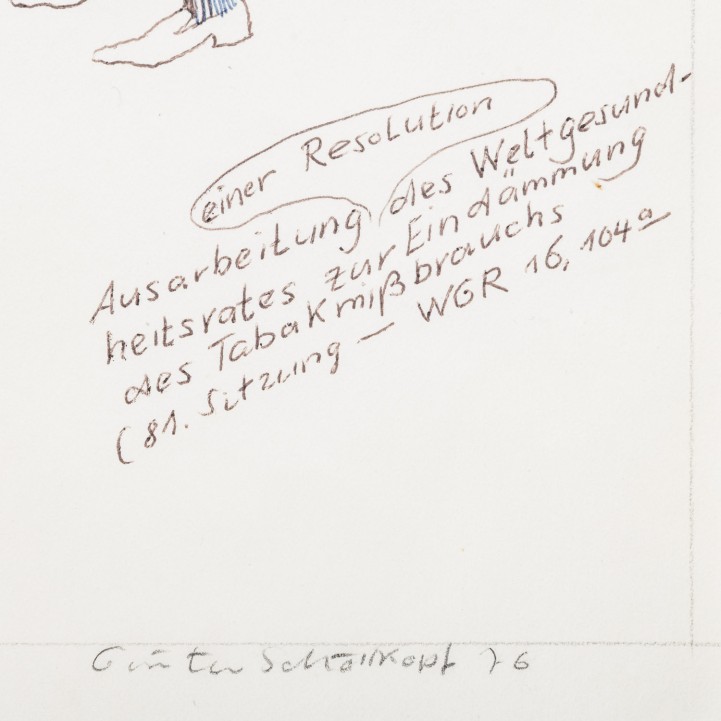 einer Resolution
Ausarbeitung des Weltgesund-
heitsrates zur Eindämmung
des Tabakmißbrauchs
(81. Sitzung – WGR 16, 104a
Günter Schöllkopf 76